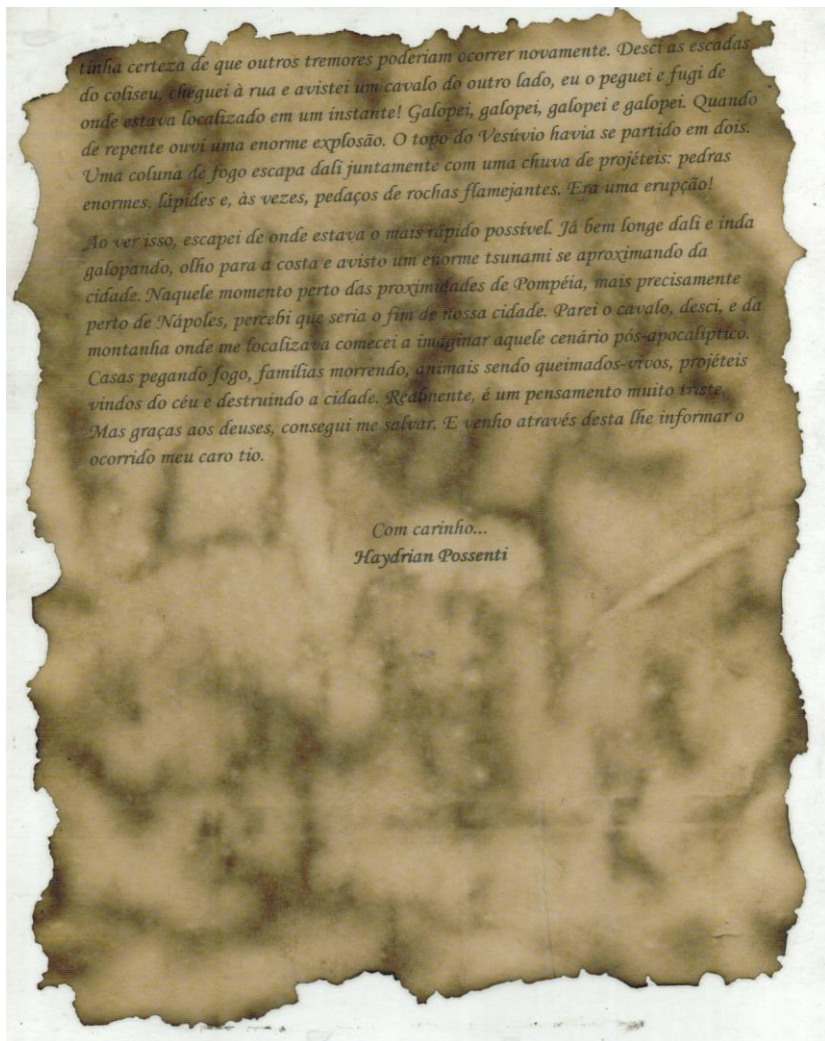 tinha certeza de que outros tremores poderiam ocorrer novamente. Desci as escadas
do coliseu, cheguei à rua e avistei um cavalo do outro lado, eu o peguei e fugi de
onde estava localizado em um instante! Galopei, galopei, galopei e galopei. Quando
de repente ouvi uma enorme explosão. O topo do Vesúvio havia se partido em dois.
Uma coluna de fogo escapa dali juntamente com uma chuva de projéteis: pedras
enormes, lápides e, às vezes, pedaços de rochas flamejantes. Era uma erupção!
Ao ver isso, escapei de onde estava o mais rápido possível. Já bem longe dali e inda
galopando, olho para a costa e avisto um enorme tsunami se aproximando da
cidade. Naquele momento perto das proximidades de Pompéia, mais precisamente
perto de Nápoles, percebi que seria o fim de nossa cidade. Parei o cavalo, desci, e da
montanha onde me localizava comecei a imaginar aquele cenário pós-apocalíptico.
Casas pegando fogo, famílias morrendo, animais sendo queimados-vivos, projéteis
vindos do céu e destruindo a cidade. Realmente, é um pensamento muito triste.
Mas graças aos deuses, consegui me salvar. E venho através desta lhe informar o
ocorrido meu caro tio.
Com carinho...
Haydrian Possenti